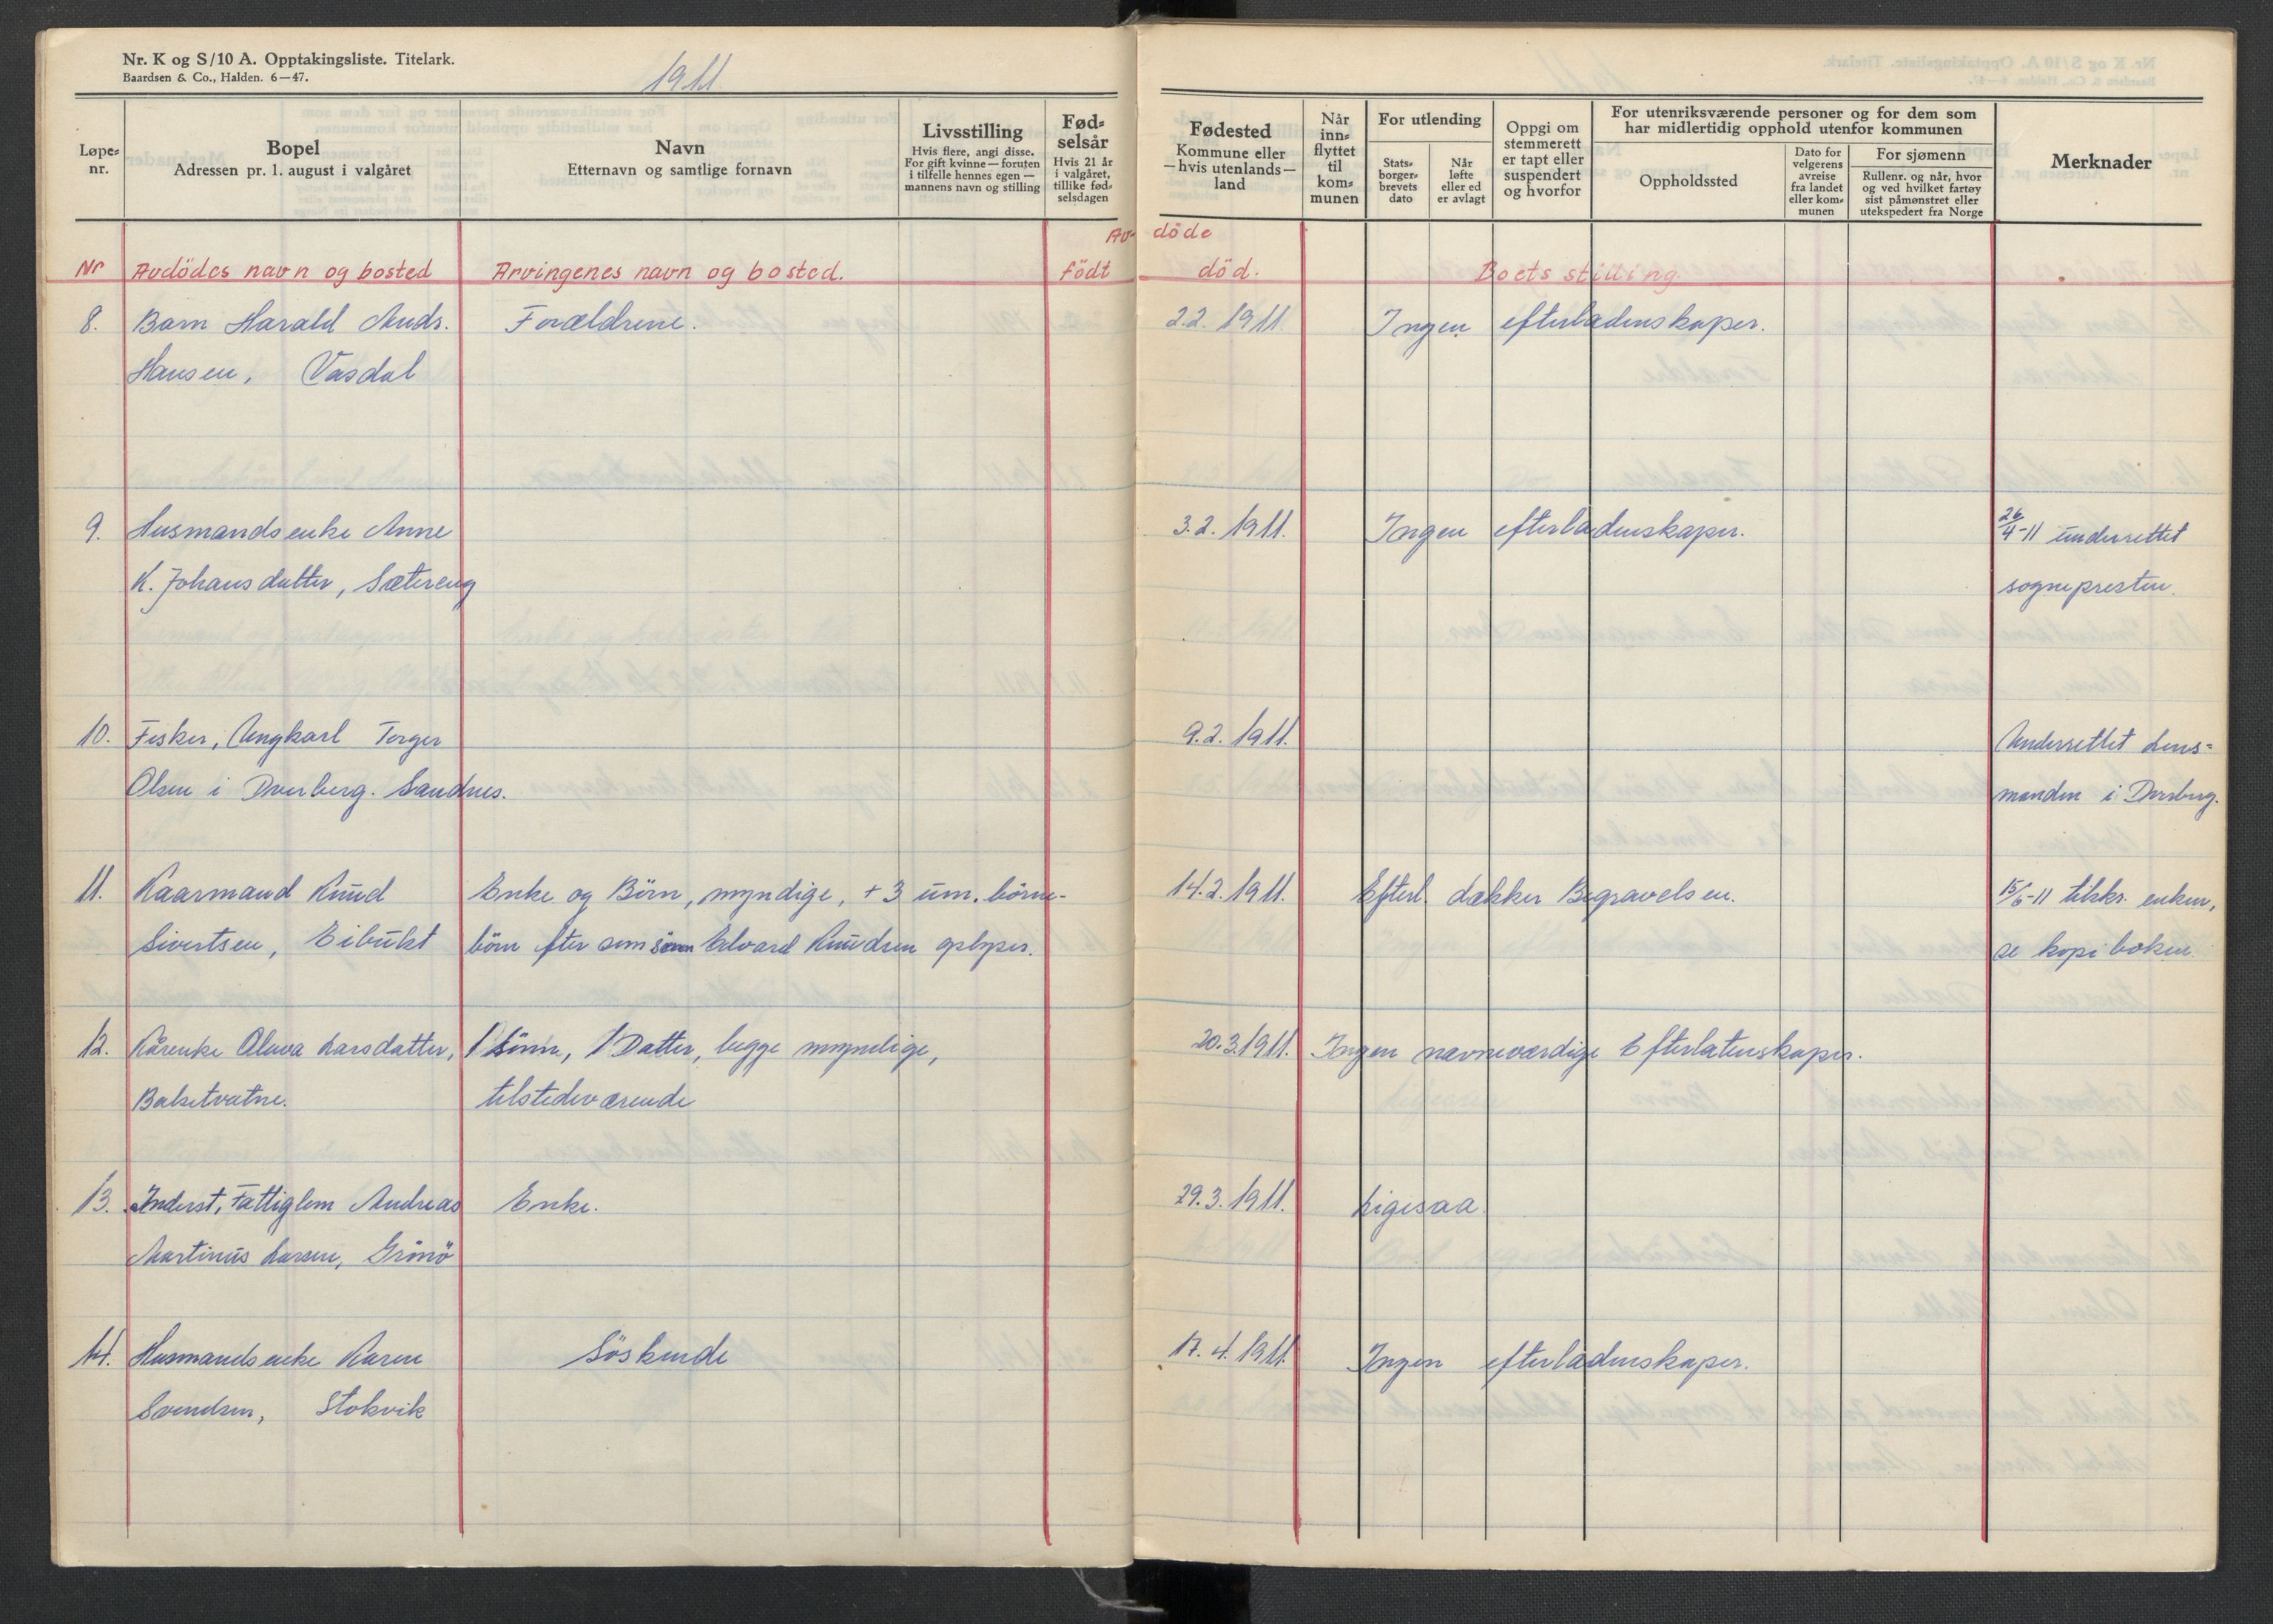 Nr. K og S/10 A. Opptakingsliste. Titelark.
Baardsen & Co., Halden. 6—47.
1911
Løpe-nr.
Bopel
Adressen pr. 1. august i valgåret
Navn
Etternavn og samtlige fornavn
Livsstilling
Hvis flere, angi disse.
For gift kvinne — foruten
i tilfelle hennes egen —
mannens navn og stilling
Fød-selsår
Hvis 21 år
i valgåret,
tillike fød-
selsdagen
Fødested
Kommune eller
— hvis utenlands —
land
Når
inn-
flyttet
til
kom-
munen
For utlending
Stats-
borger-
brevets
dato
Når
løfte
eller ed
er avlagt
Oppgi om
stemmerett
er tapt eller
suspendert
og hvorfor
For utenriksværende personer og for dem som
har midlertidig opphold utenfor kommunen
Oppholdssted
Dato for
velgerens
avreise
fra landet
eller kom-
munen
For sjømenn
Rullenr. og når, hvor
og ved hvilket fartøy
sist påmønstret eller
utekspedert fra Norge
Merknader
Av- döde
Nr Avdödes navn og bosted Arvingenes navn og bosted. født død. Boets stilling.
8. Barn Harald Andr. Forældrene. 22. 1911 Ingen efterladenskaper.
Hansen, Vasdal
9. Husmandsenke Anne 3.2. 1911. Ingen efterladenskaper. 26/4-11 underrettet
K. Johansdatter, Sætereng sognepresten.
10. Fisker, Ungkarl Torger 9.2. 1911. Underrettet Lens-
Olsen i Dverberg. Sandnes. manden i Dverberg.
11. Kaarmand Knud Enke og Börn, myndige, + 3 um. börne- 14.2. 1911. Efterl. dækker Begravelsen. 15/6-11 tilskr. enken,
Sivertsen, Eibukt börn efter sönn Edvard Knudsen oplyses. se kopiboken.
12. Kårenke Olava Larsdatter, 1 Sönn, 1 Datter, begge myndige, 20.3.1911. Ingen navneværdige Efterlatenskaper.
Balsetvatne. tilstedeværende
13. Inderst, Fattiglem Andreas Enke. 29.3. 1911. Ligesaa.
Martinus Larsen, Grönö
14. Husmandsenke Karen Söskende 17. 4. 1911. Ingen efterladenskaper.
Svendsen, Stokvik